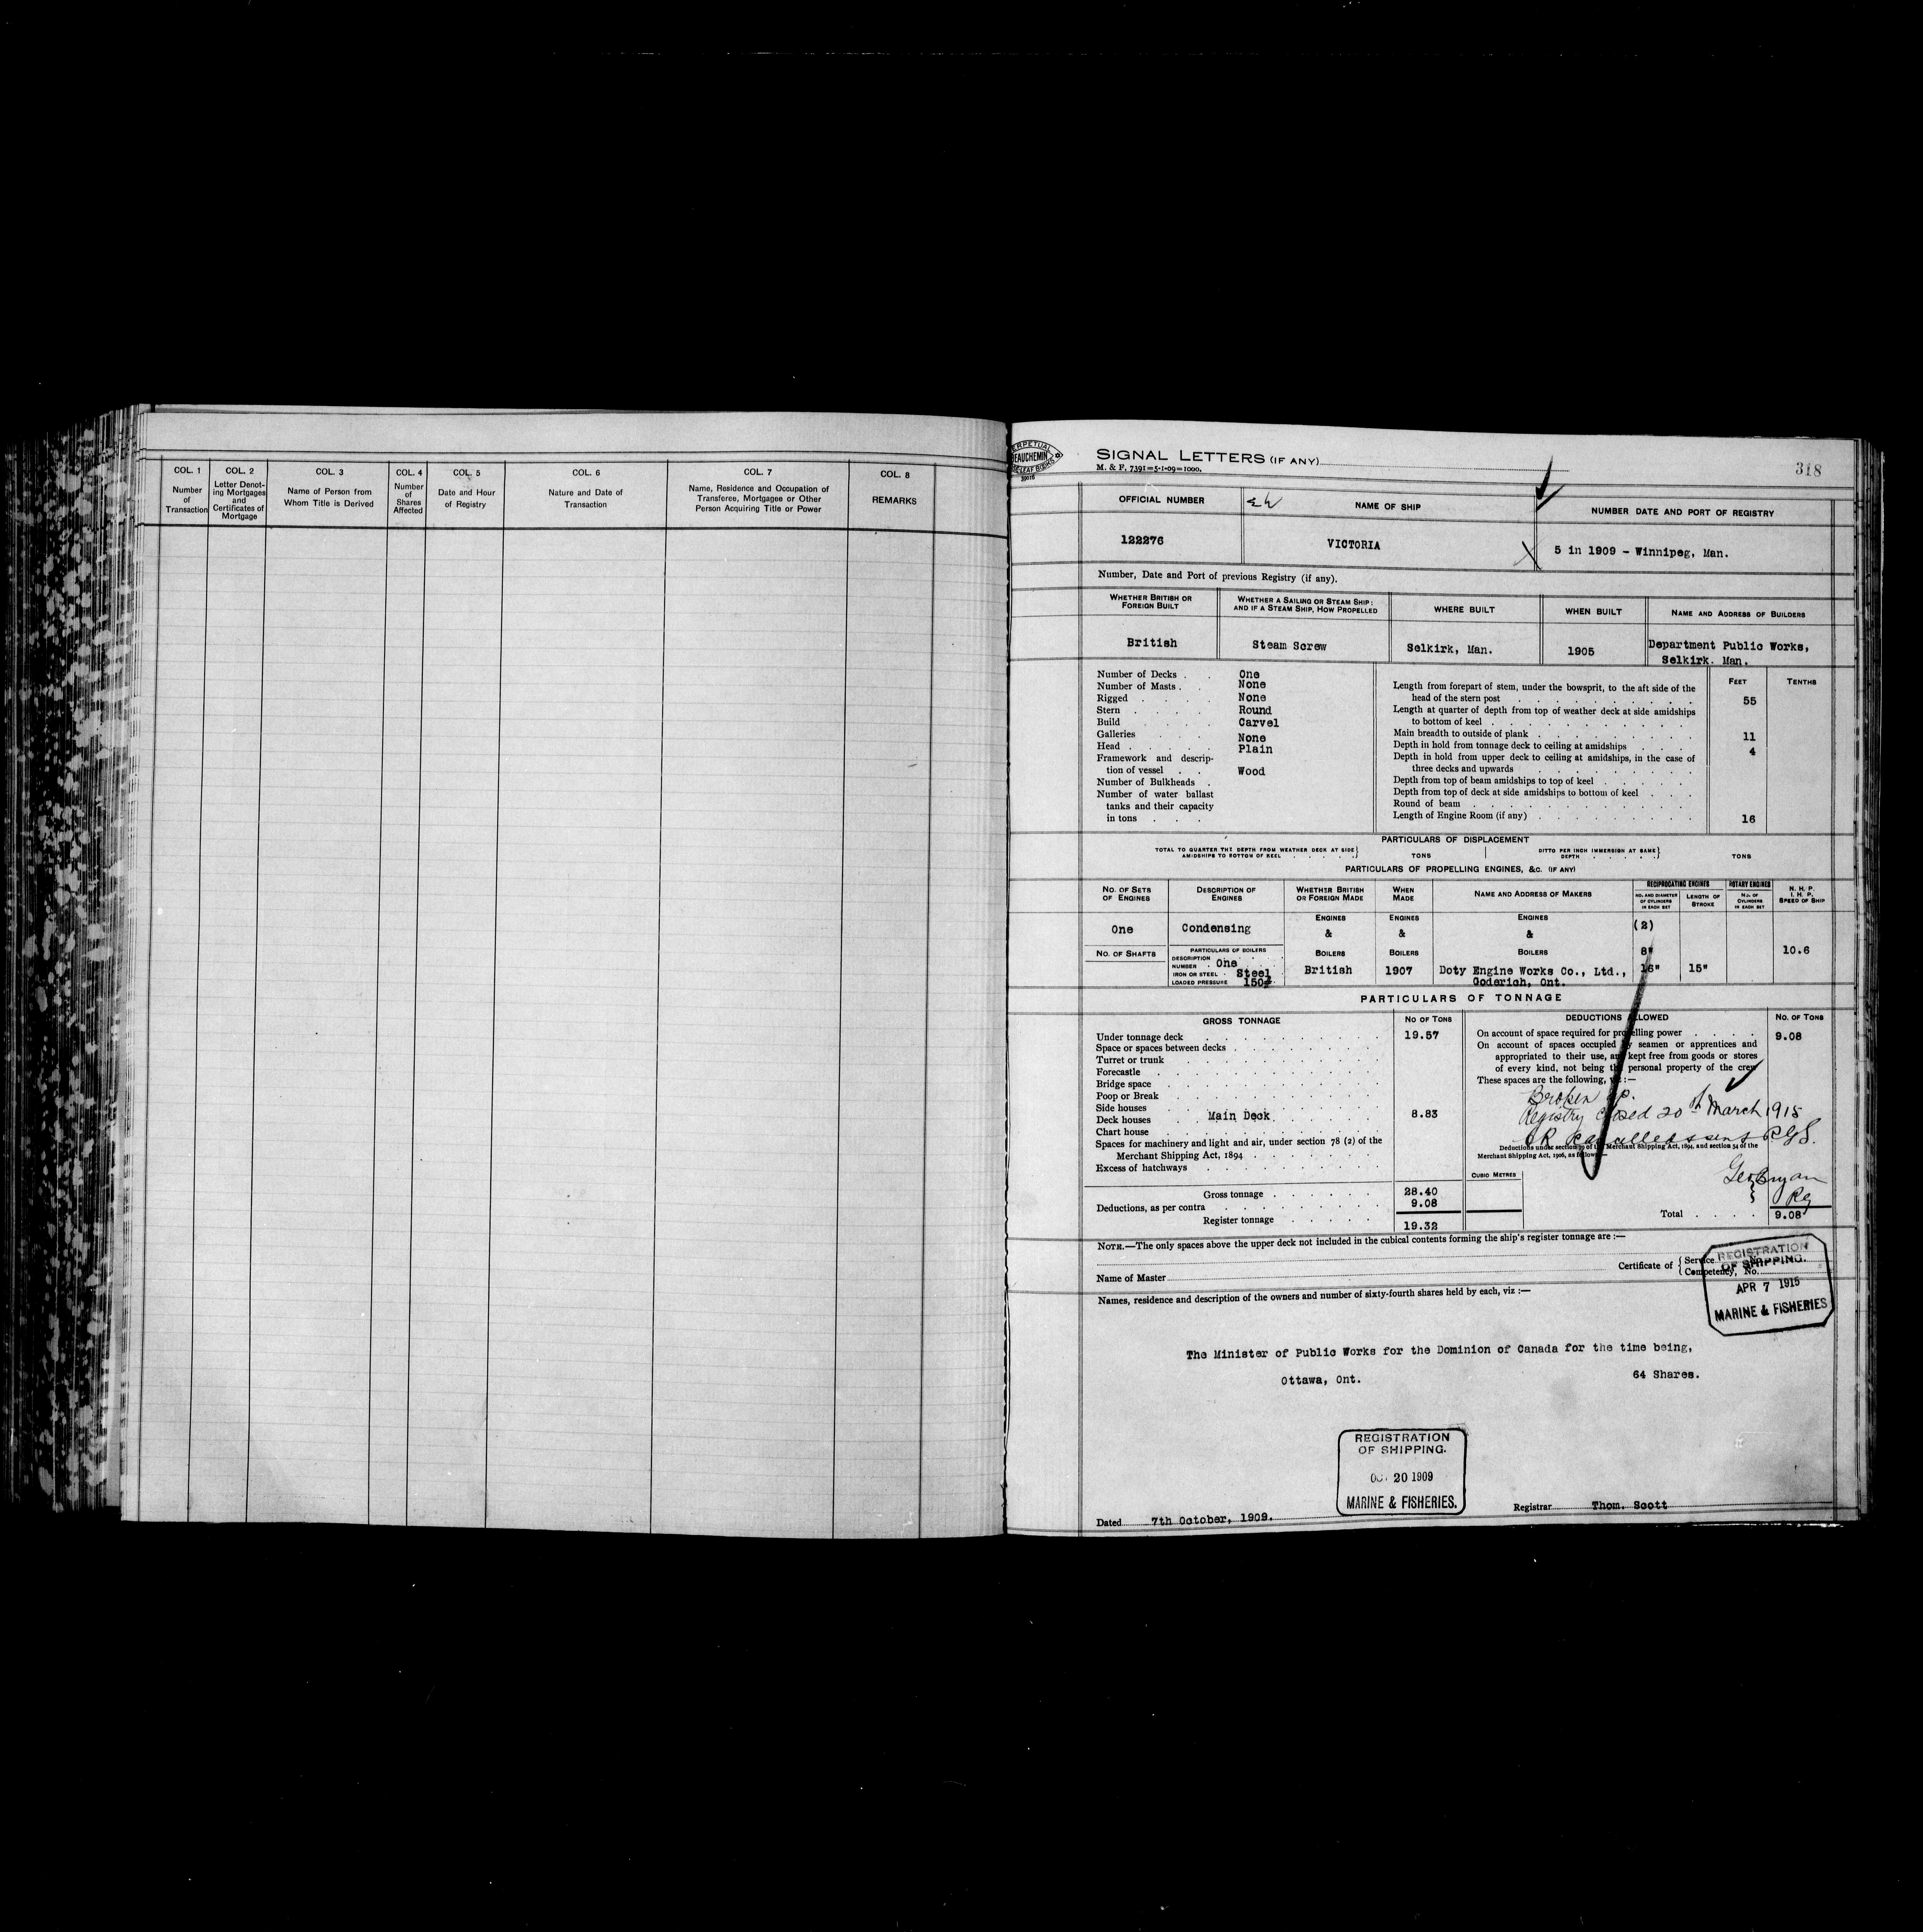 COL. 1
Number
of
Transaction
COL. 2
Letter Denot-
ing Mortgages
and
Certificates of
Mortgage
COL. 3
Name of Person from
Whom Title is Derived
COL. 4
Number
of
Shares
Affected
COL. 5
Date and Hour
of Registry
COL. 6
Nature and Date of
Transaction
COL. 7
Name, Residence and Occupation of
Transferee, Mortgagee or Other
Person Acquiring Title or Power
COL. 8
REMARKS
SIGNAL LETTERS (IF ANY)
M. & F. 7391=5-1-09=1000.
318
OFFICIAL NUMBER
NAME OF SHIP
NUMBER DATE AND PORT OF REGISTRY
122276
VICTORIA
5 in 1909 - Winnipeg, Man.
Number, Date and Port of previous Registry (if any).
WHETHER BRITISH OR
FOREIGN BUILT
WHETHER A SAILING OR STEAM SHIP:
AND IF A STEAM SHIP, HOW PROPELLED
WHERE BUILT
WHEN BUILT
NAME AND ADDRESS OF BUILDERS
British
Steam Screw
Selkirk, Man.
1905
Department Public Works,
Selkirk. Man.
Number of Decks . . One
Number of Masts . . None
Rigged . . . . None
Stern . . . . Round
Build . . . . Carvel
Galleries . . . None
Head . . . . Plain
Framework and descrip-
tion of vessel . . Wood
Number of Bulkheads .
Number of water ballast
tanks and their capacity
in tons . . .
FEET
TENTHS
Length from forepart of stem, under the bowsprit, to the aft side of the
head of the stern post 55
Length at quarter of depth from top of weather deck at side amidships
to bottom of keel
Main breadth to outside of plank 11
Depth in hold from tonnage deck to ceiling at amidships 4
Depth in hold from upper deck to ceiling at amidships, in the case of
three decks and upwards
Depth from top of beam amidships to top of keel
Depth from top of deck at side amidships to bottom of keel
Round of beam
Length of Engine Room (if any) 16
PARTICULARS OF DISPLACEMENT
TOTAL TO QUARTER THE DEPTH FROM WEATHER DECK AT SIDE
AMIDSHIPS TO BOTTOM OF KEEL
TONS
DITTO PER INCH IMMERSION AT SAME
DEPTH
TONS
PARTICULARS OF PROPELLING ENGINES, &C. (IF ANY)
NO. OF SETS
OF ENGINES
DESCRIPTION OF
ENGINES
WHETHER BRITISH
OR FOREIGN MADE
WHEN
MADE
NAME AND ADDRESS OF MAKERS
RECIPROCATING ENGINES
NO. AND DIAMETER
OF CYLINDERS
IN EACH SET
LENGTH OF
STROKE
ROTARY ENGINES
NO. OF
CYLINDERS
IN EACH SET
N. H. P.
I. H. P.
SPEED OF SHIP
One
Condensing
ENGINES
&
ENGINES
&
ENGINES
&
(2)
NO. OF SHAFTS
PARTICULARS OF BOILERS
DESCRIPTION
NUMBER . One
IRON OR STEEL . Steel
LOADED PRESSURE 150#
BOILERS
British
BOILERS
1907
BOILERS
Doty Engine Works Co., Ltd.,
Goderich, Ont.
8"
16"
15"
10.6
PARTICULARS OF TONNAGE
GROSS TONNAGE
NO OF TONS
DEDUCTIONS ALLOWED
NO. OF TONS
Under tonnage deck 19.57
Space or spaces between decks
Turret or trunk
Forecastle
Bridge space
Poop or Break
Side houses
Deck houses Main Deck 8.83
Chart house
Spaces for machinery and light and air, under section 78 (2) of the
Merchant Shipping Act, 1894
Excess of hatchways
Gross tonnage 28.40
Deductions, as per contra 9.08
Register tonnage 19.32
On account of space required for propelling power 9.08
On account of spaces occupied by seamen or apprentices and
appropriated to their use, and kept free from goods or stores
of every kind, not being the personal property of the crew
These spaces are the following, viz :—
Broken up.
Registry closed 20th March 1915
Deductions under section 79 of the Merchant Shipping Act, 1894, and section 54 of the
Merchant Shipping Act, 1906, as follows—
CUBIC METRES
Total 9.08
NOTE.—The only spaces above the upper deck not included in the cubical contents forming the ship's register tonnage are :—
Name of Master
Certificate of
Service
Competency, No.
REGISTRATION
OF SHIPPING.
APR 7 1915
MARINE & FISHERIES
Names, residence and description of the owners and number of sixty-fourth shares held by each, viz :—
The Minister of Public Works for the Dominion of Canada for the time being,
Ottawa, Ont. 64 Shares.
REGISTRATION
OF SHIPPING.
20 1909
MARINE & FISHERIES.
Dated 7th October, 1909.
Registrar Thom. Scott